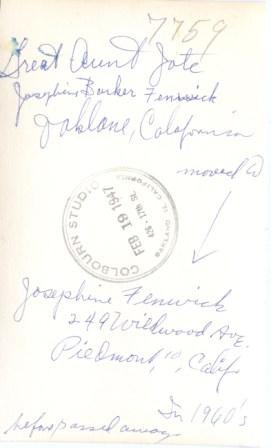 7759
Great Aunt Jote
Josephine Barker Fenwick
Oaklane, California
moved to
COLBOURN STUDIO
FEB 19 1947
426 - 17th ST.
OAKLAND 12, CALIFORNIA
Josephine Fenwick
249 Wildwood Ave.
Piedmont, 10, Calif
In 1960's
before passed away